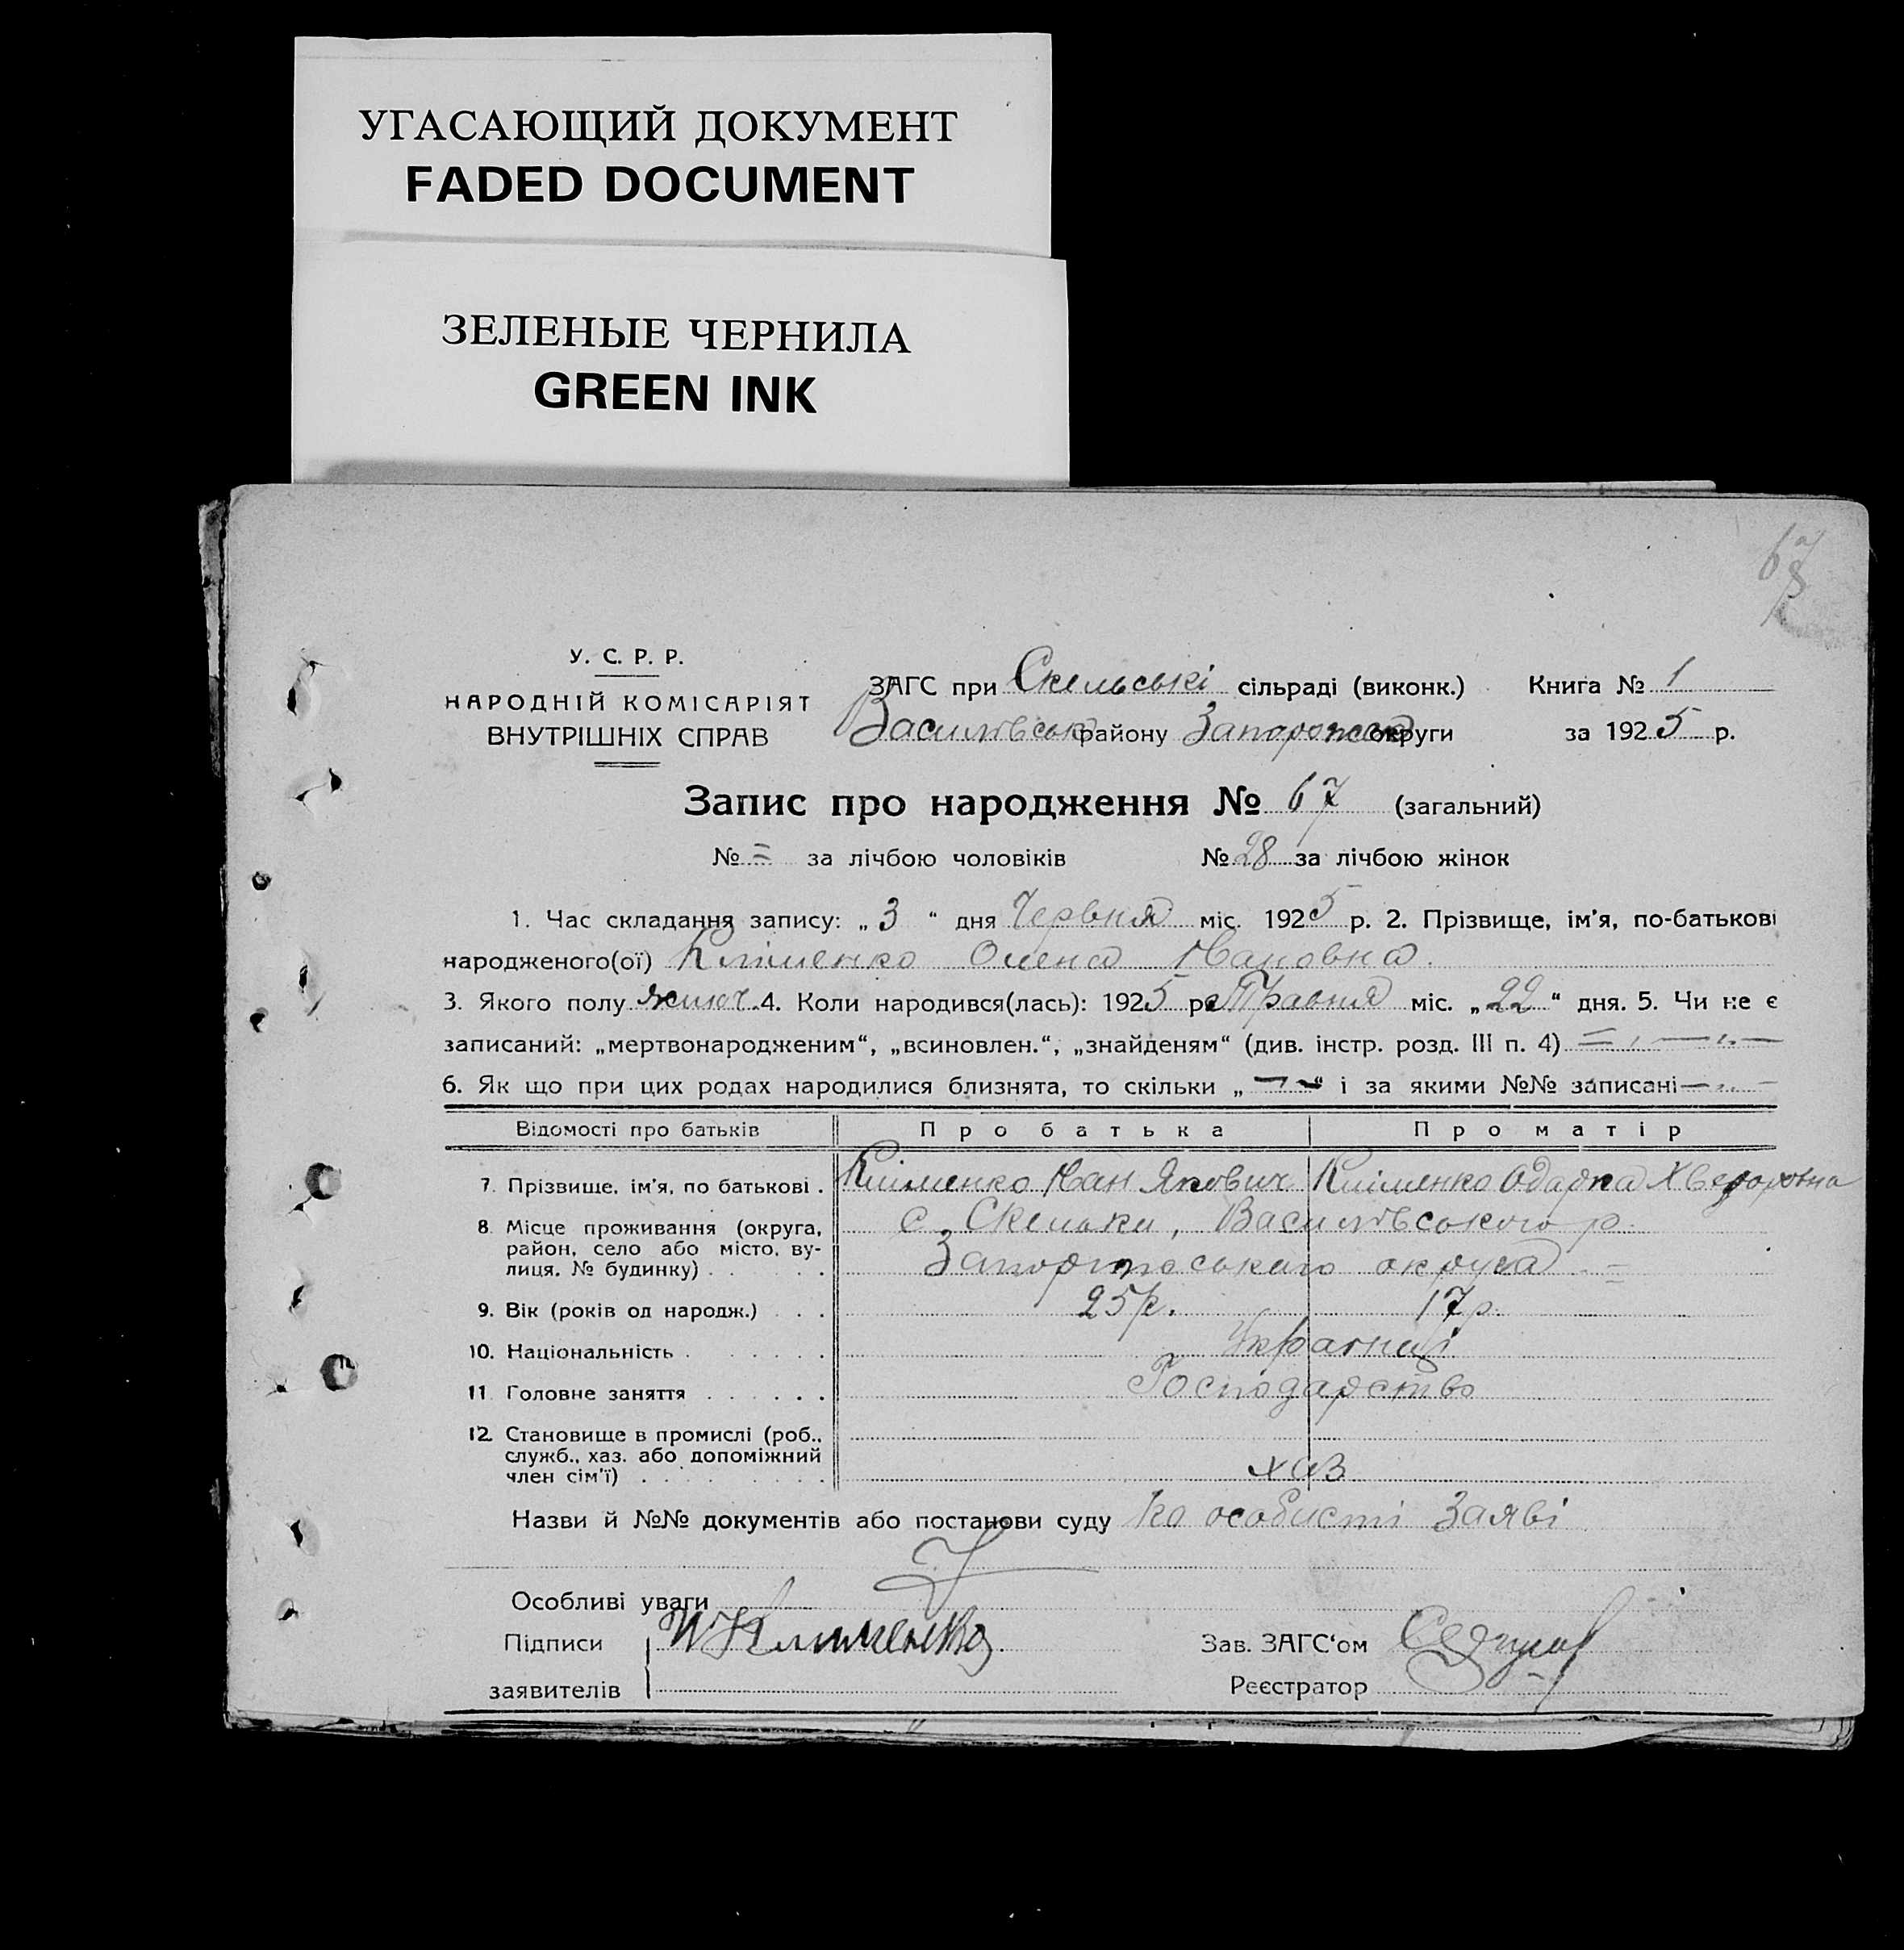 УГАСАЮЩИЙ ДОКУМЕНТ
FADED DOCUMENT
ЗЕЛЕНЫЕ ЧЕРНИЛА
GREEN INK
67
У. С. Р. Р.
НАРОДНІЙ КОМІСАРІЯТ
ВНУТРІШНІХ СПРАВ
ЗАГС при Скельські сільраді (виконк.) Книга № 1
Василівськ району Запорожск округи за 1925 р.
Запис про народження № 67 (загальний)
№ = за лічбою чоловіків № 28 за лічбою жінок
1. Час складання запису: „3“ дня Червня міс. 1925 р. 2. Прізвище, ім'я, по-батькові
народженого(ої) Кліменко Олена Івановна.
3. Якого полу жиноч. 4. Коли народився(лась): 1925 р. Травня міс. „22“ дня. 5. Чи не є
записаний: „мертвонародженим“, „всиновлен.“, „знайденям“ (див. інстр. розд. III п. 4)
6. Як що при цих родах народилися близнята, то скільки „ “ і за якими №№ записані
Відомості про батьків Про батька Про матір
7. Прізвище, ім'я, по батькові. Кліменко Іван Якович Кліменко Одарка Хведоровна
8. Місце проживання (округа, район, село або місто, ву-лиця, № будинку) с. Скельки, Василівського р.
Запорожського округа
9. Вік (років од народж.) 25 р. 17 р.
10. Національність Українці
11. Головне заняття Господарство
12. Становище в промислі (роб., служб., хаз. або допоміжний член сім'ї) хаз
Назви й №№ документів або постанови суду по особисті заяві
Особливі уваги
Підписи И Клименко Зав. ЗАГС'ом
заявителів Реєстратор